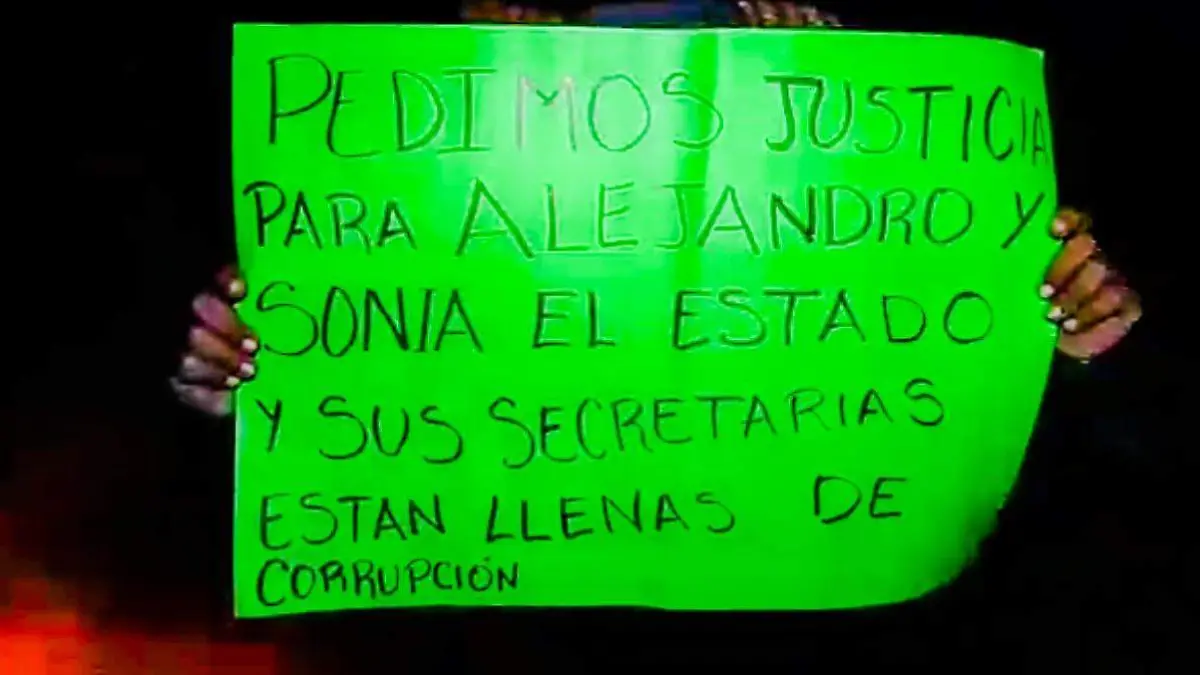 PEDIMOS JUSTICIA
PARA ALEJANDRO Y
SONIA EL ESTADO
Y SUS SECRETARIAS
ESTAN LLENAS DE
CORRUPCIÓN